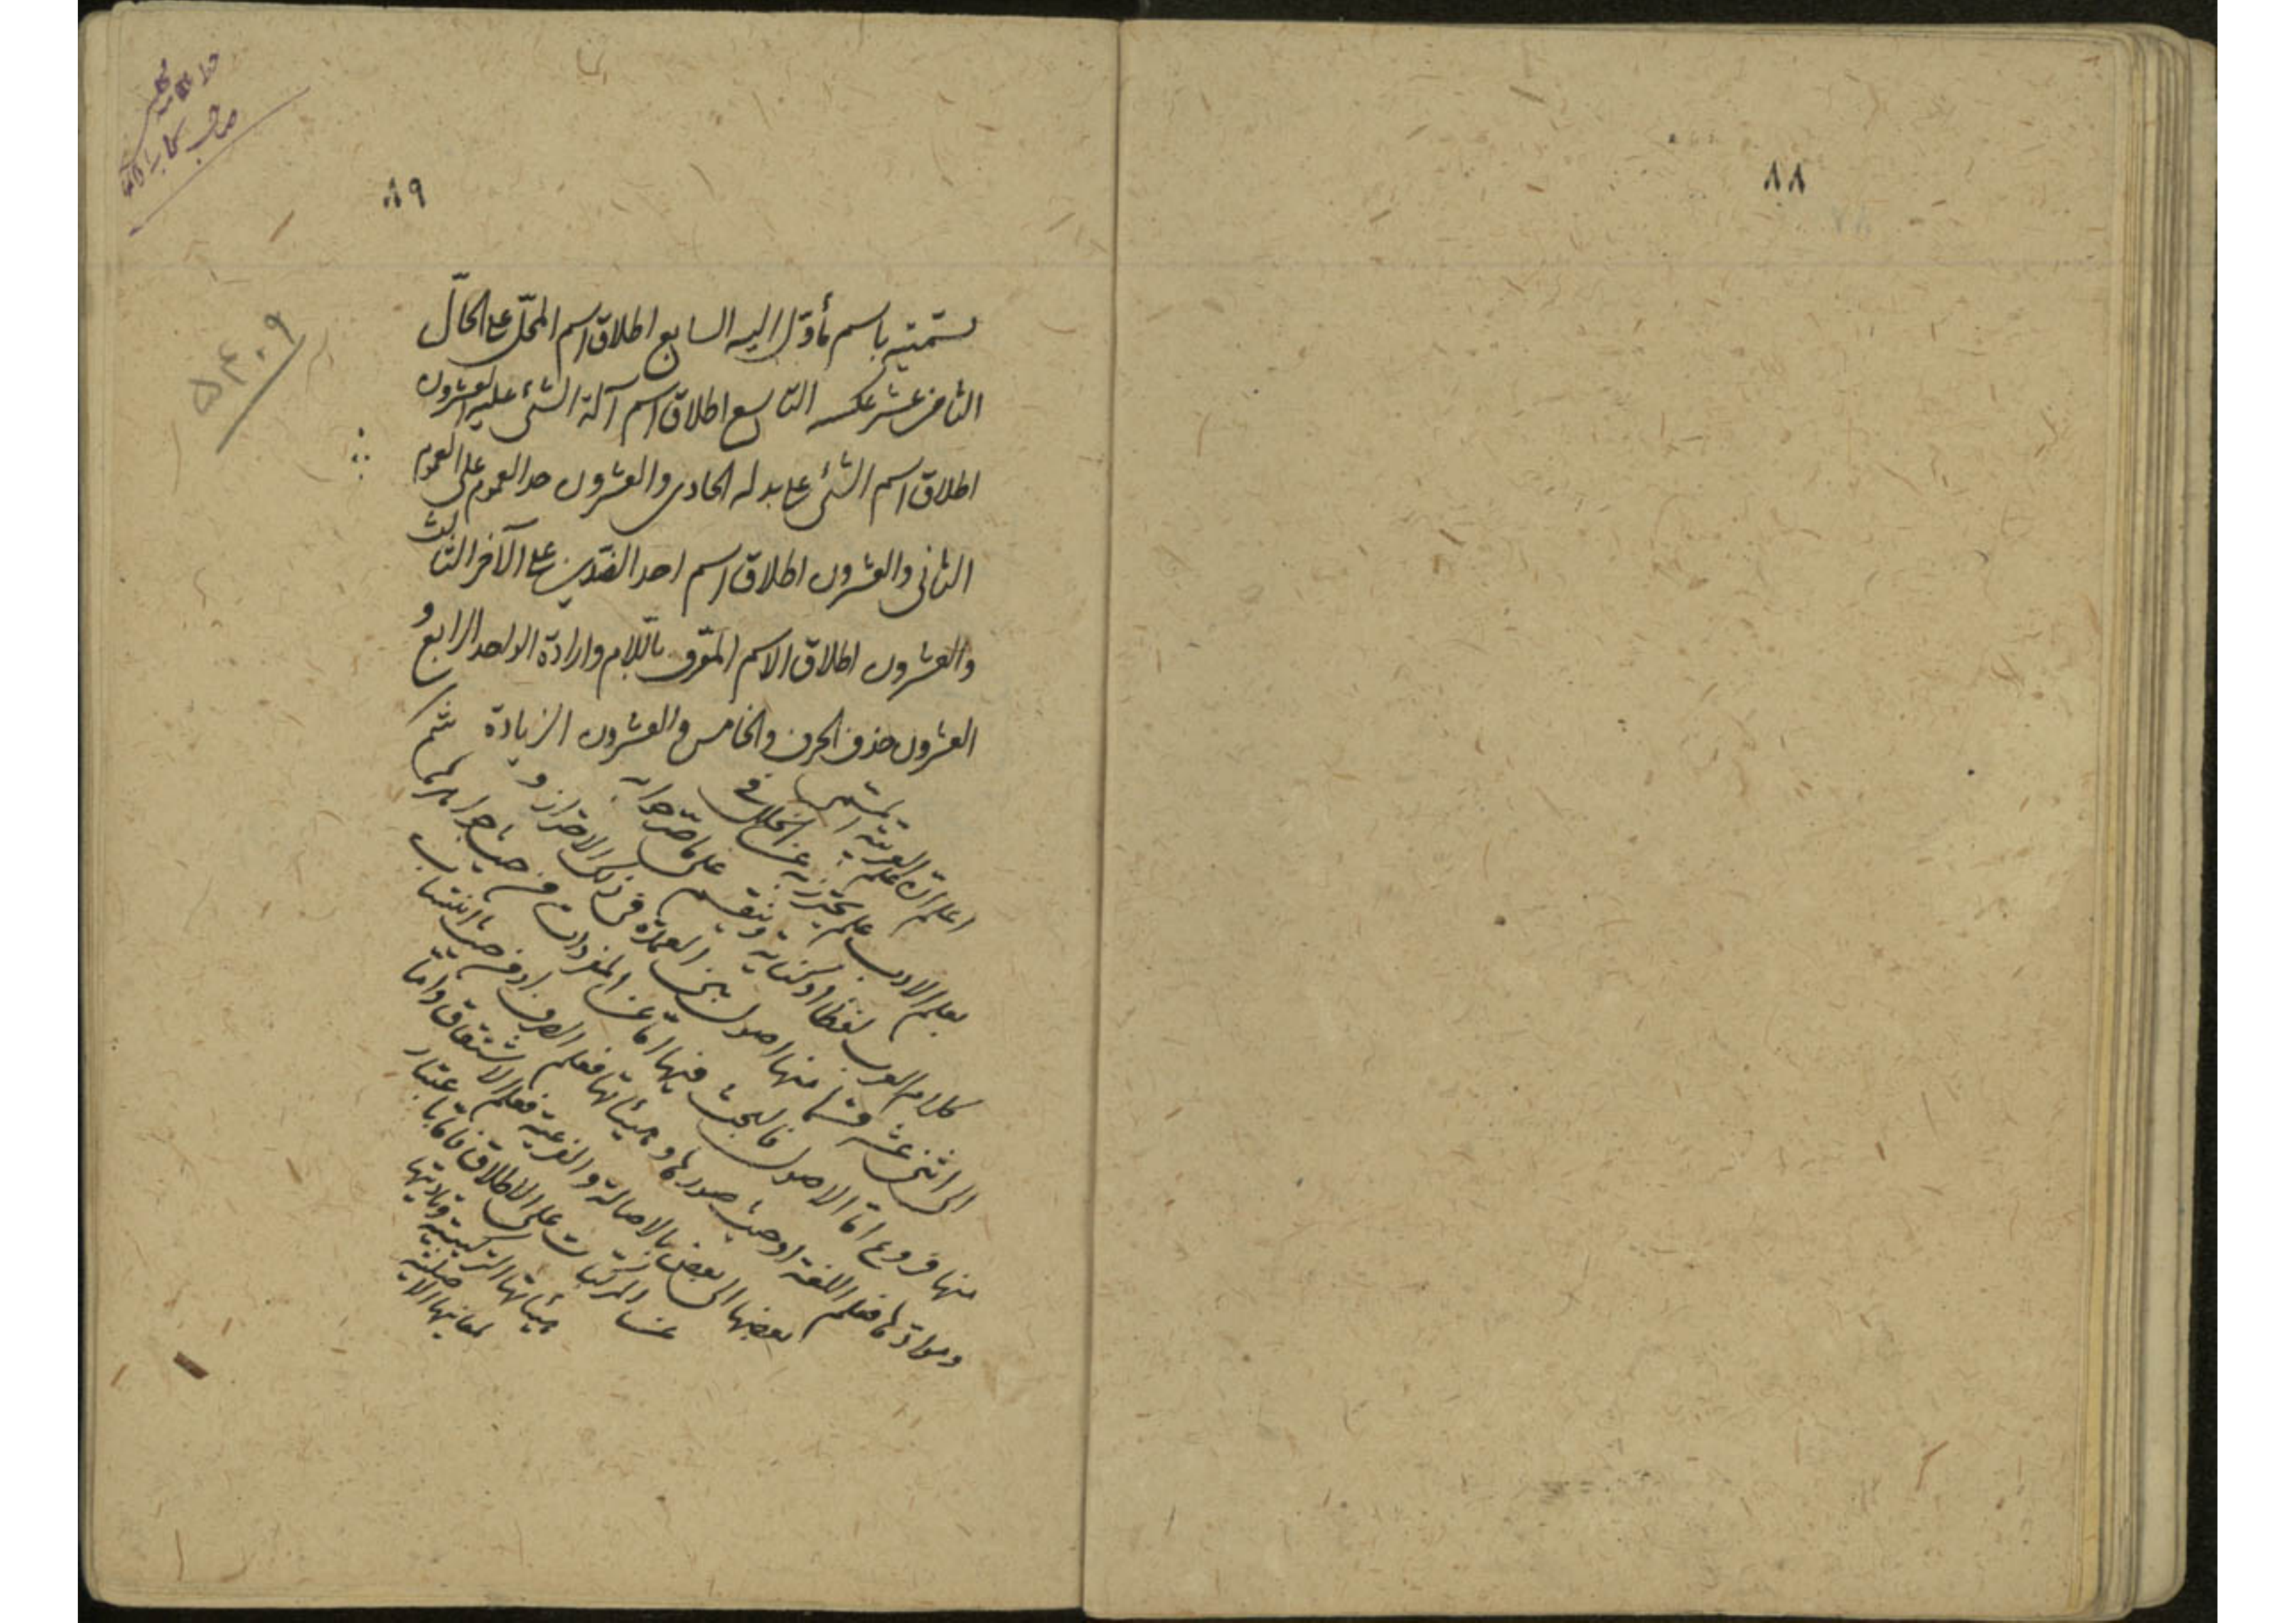 ٨٨
٨٩
٥٤٠٩
تسمیته باسم ما یؤل الیه السابع اطلاق اسم المحلّ علی الحالّ
الثامن عشر عکسه التاسع اطلاق اسم آلة الشئ علیه العشرون
اطلاق اسم الشئ علی بدله الحادی والعشرون
الثانی والعشرون اطلاق اسم احد الضدین علی الآخر الثالث
والعشرون اطلاق الاسم المعرّف باللّام وارادة الواحد الرابع و
العشرون حذف الحرف والخامس والعشرون الزیادة
ثم اعلم انّ علم العربیة المسمّی
بعلم الادب علم یحترز به عن الخلل فی
کلام العرب لفظا او کتابة وینقسم علی ما صرّحوا به
الی اثنی عشر قسما منها اصول هی العمدة فی ذلک الاحتراز و
منها فروع امّا الاصول فالبحث فیها امّا عن المفردات من حیث جواهرها
وموادّها فعلم اللغة او من حیث صورها وهیئاتها فعلم الصرف او من حیث انتساب
بعضها الی بعض بالاصالة والفرعیة فعلم الاشتقاق وامّا
عن المرکبات علی الاطلاق فامّا باعتبار
هیئاتها الترکیبیة وتادیتها
لمعانیها الاصلیة